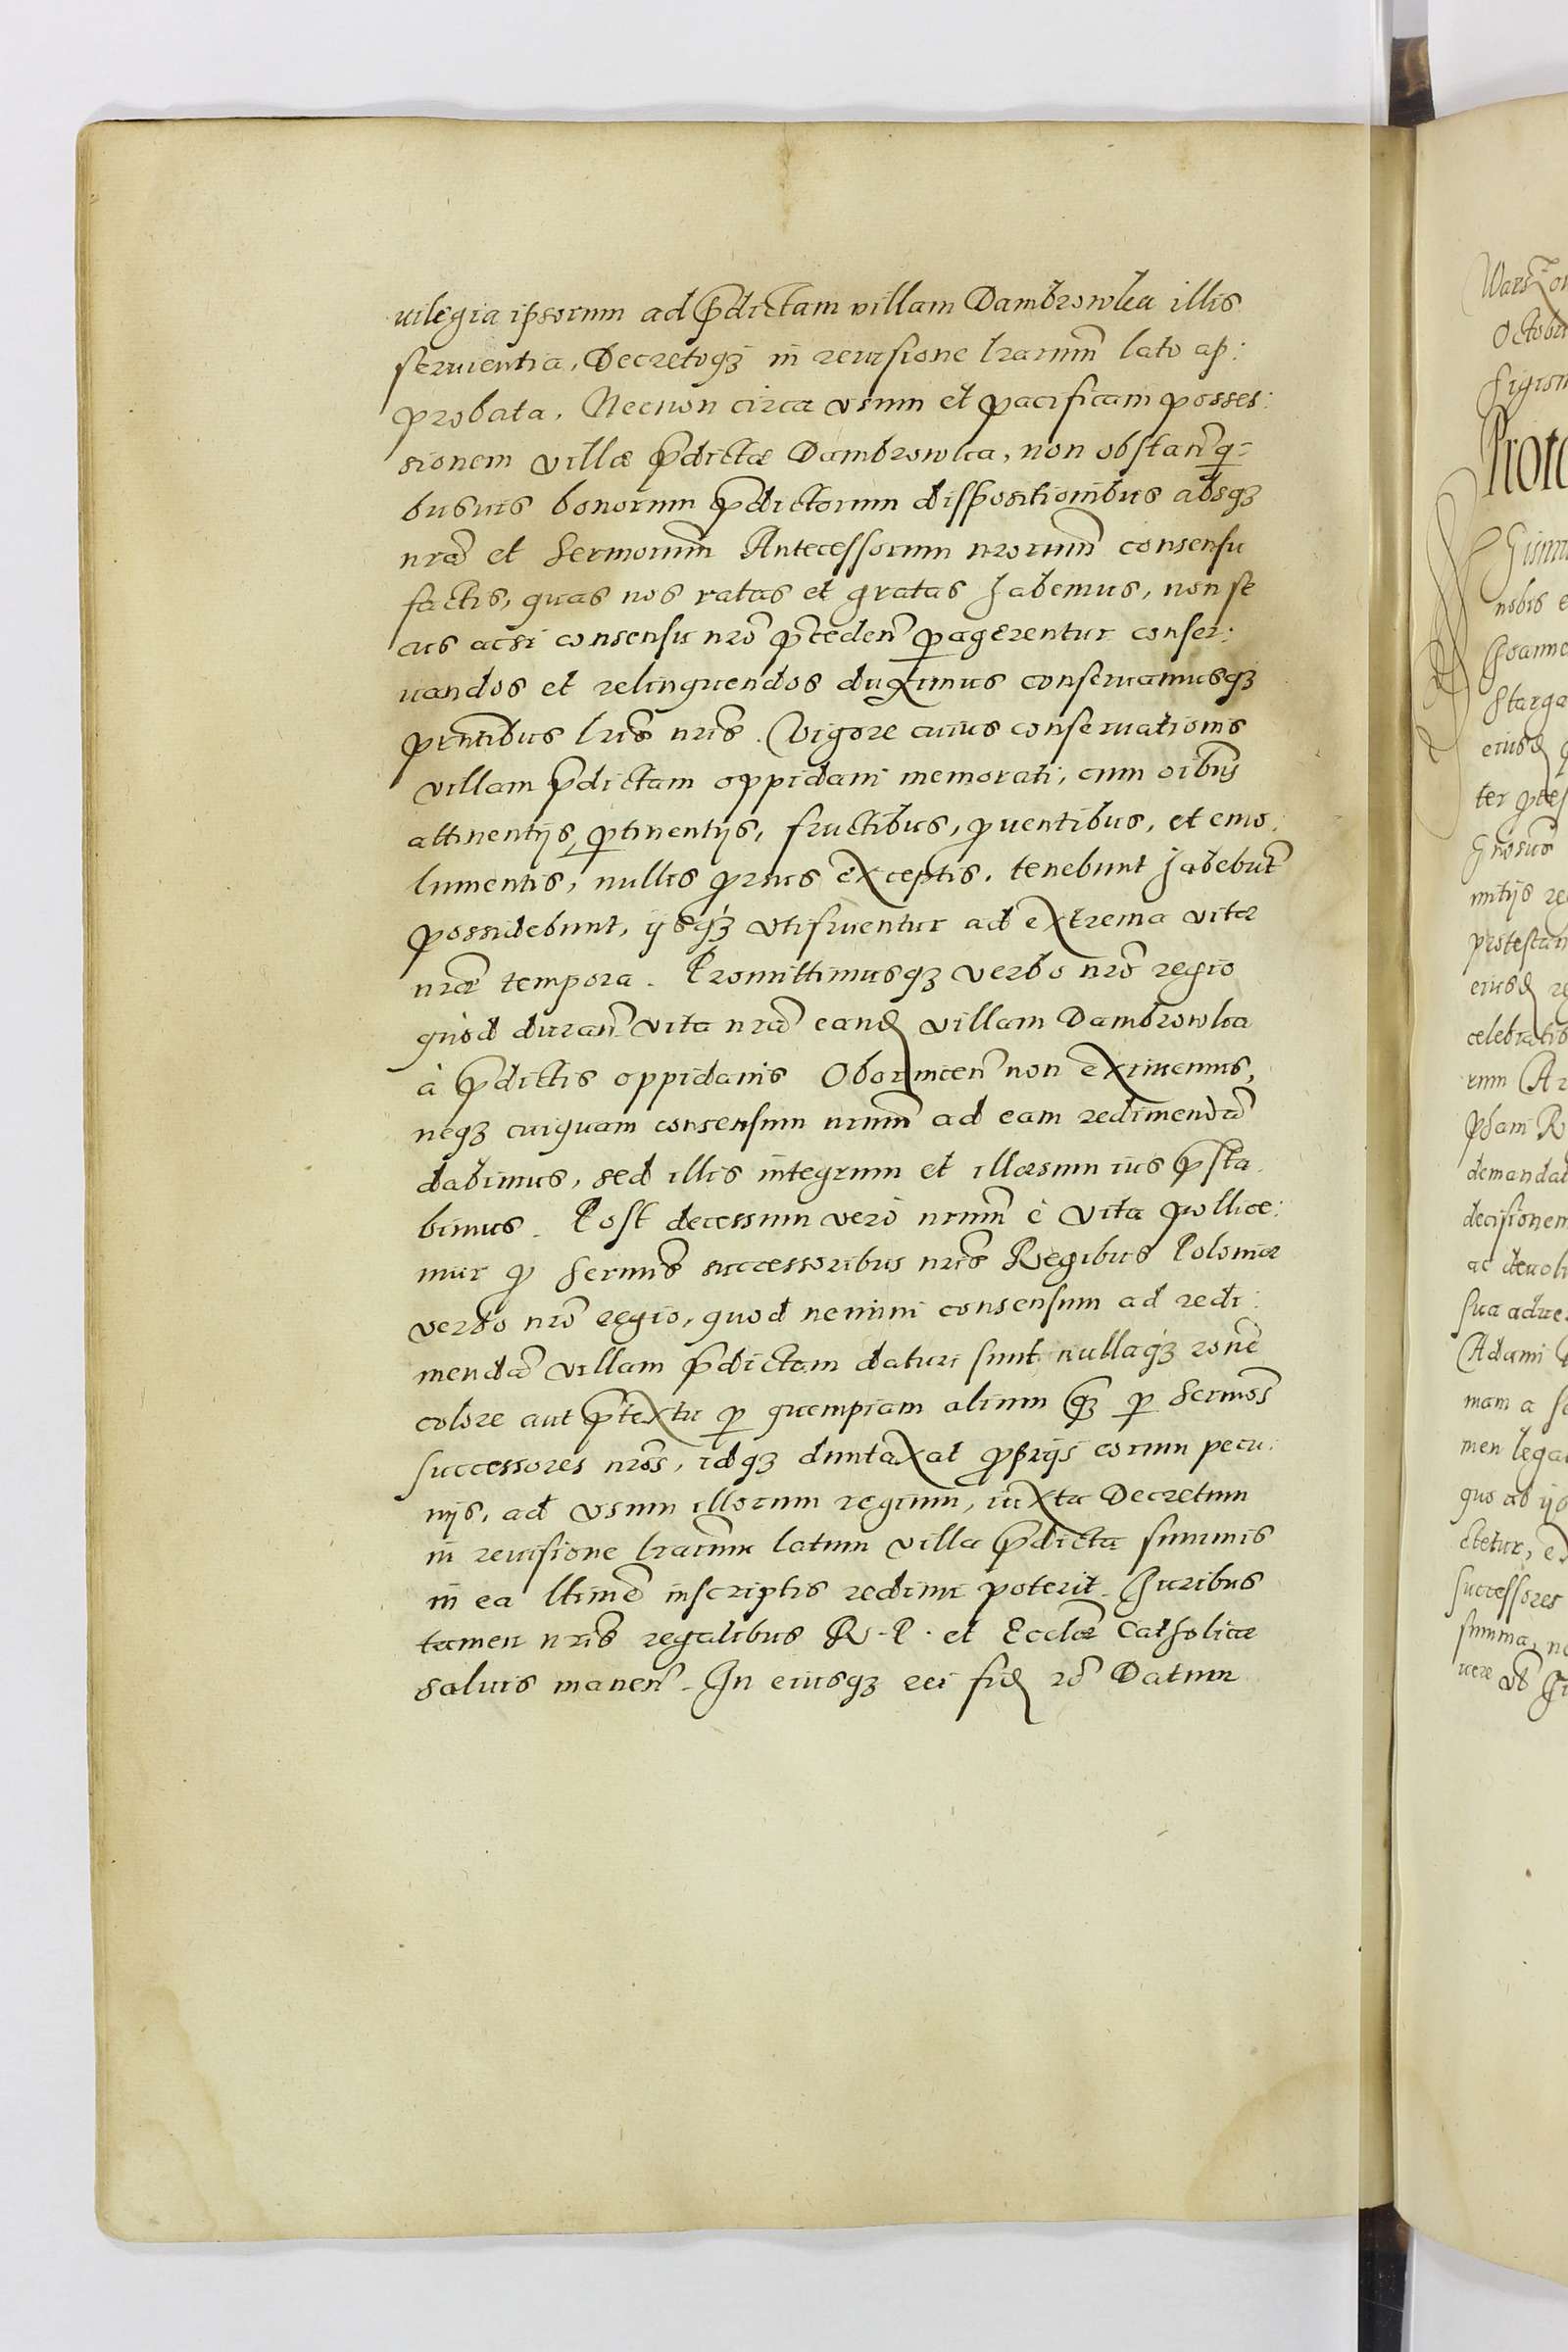 uilegia ipsorum ad p̃dictam villam Dambrowka illis
seruientia, Decretoq₃ in reuisione l̃rarum lato ap:
probata. Necnon circa vsum et pacificam posses:
sionem villæ p̃dictæ Dambrowka, non obstan̄ qui:
busuis bonorum p̃dictorum dispositionibus absq₃
nr̃o et Sermorum̄ Antecessorum nrorum̄ consensu
factis, quas nos ratas et gratas habemus, non se
cus acsi consensu nr̃o p̃cedeñ ꝑagerentur conser:
uandos et relinquendos duximus conseruamusq₃
pr̃ntibus l̃ris nr̃is. Vigore cuius conseruationis
villam p̃dictam oppidani memorati, cum oĩbus
attinentijs, ꝑtinentijs, fructibus, ꝓuentibus, et emo:
lumentis, nullis ꝓrsus exceptis. tenebunt habebũt
possidebunt, ijsq₃ vtifruentur ad extrema vitæ
nr̃æ tempora. Promittimusq₃ verbo nr̃o regio
quod durañ vita nr̃a eand villam Dambrowka
à p̃dictis oppidanis Oborniceñ non eximemus,
neq₃ cuiquam consensum nrum̄ ad eam redimendã
dabimus, sed illis integrum et illæsum ius p̃sta
bimus. Post decessum verò nrum̄ è vita pollice:
mur ꝓ Sermis̃ successoribus nr̃is Regibus Poloniæ
verbo nr̃o regio, quod nemini consensum ad redi:
mendã villam p̃dictam daturi sunt nullaq₃ ronẽ
colore aut p̃textu ꝑ quempiam alium q₃ ꝑ Sermos̃
successores nr̃os, idq₃ duntaxat ꝓprijs eorum pecu:
nijs, ad vsum illorum regium, iuxta Decretum
in reuisione l̃rarum latum villa p̃dicta summis
in ea l̃timè inscriptis redimi poterit. Iuribus
tamen nr̃is regalibus R. P. et Eccl̃æ Catholicæ
saluis maneñ. In eiusq₃ rei fid rõ Datum
Octobr
Gismu
nobis e
Joanne
Starga
eiusd
ter
mitijs re
protestan
eiusd re
celebratib
rum Ar
demandat
decisionem
ac deuol
sua adue
Adami
mam a
men lega
quo ab ijs
ctetur,
successores
summa, n